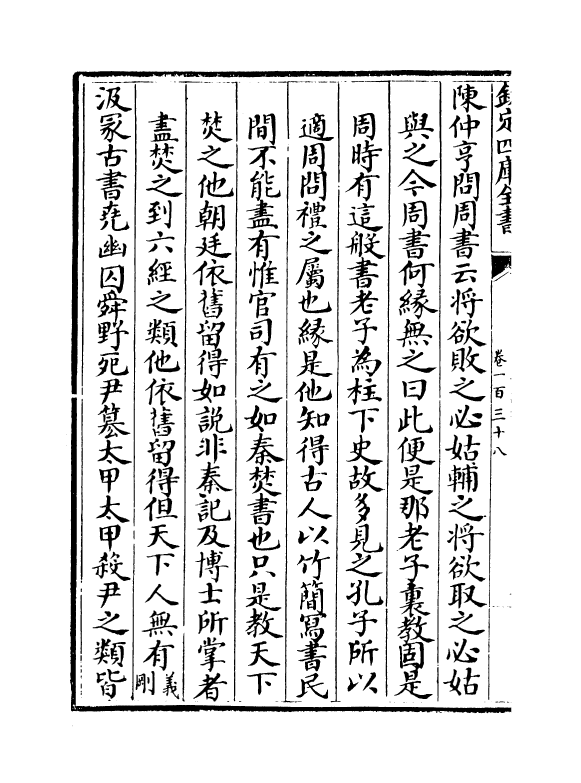 欽定四庫全書
卷一百三十八
陳仲亨問周書云將欲敗之必姑輔之將欲取之必姑
與之今周書何緣無之曰此便是那老子裏教固是
周時有這般書老子為柱下史故多見之孔子所以
適周問禮之屬也緣是他知得古人以竹簡寫書民
間不能盡有惟官司有之如秦焚書也只是教天下
焚之他朝廷依舊留得如說非秦記及博士所掌者
盡焚之到六經之類他依舊留得但天下人無有義剛
汲冢古書堯幽囚舜野死尹簒太甲太甲殺尹之類皆